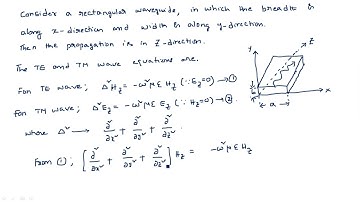 Consider a rectangular waveguide, in which the breadth is
along x-direction and width is along y-direction.
Then the propagation is in Z-direction.
The TE and TM wave equations are.
For TE wave; Δ² Hz = -ω²με Hz (∵ Ez=0) → ①
For TM wave; Δ² Ez = -ω²με Ez (∵ Hz=0) → ②.
where Δ² → ∂²/∂x² + ∂²/∂y² + ∂²/∂z²
From ①; [∂²/∂x² + ∂²/∂y² + ∂²/∂z²] Hz = -ω²με Hz
y
Z
x
a